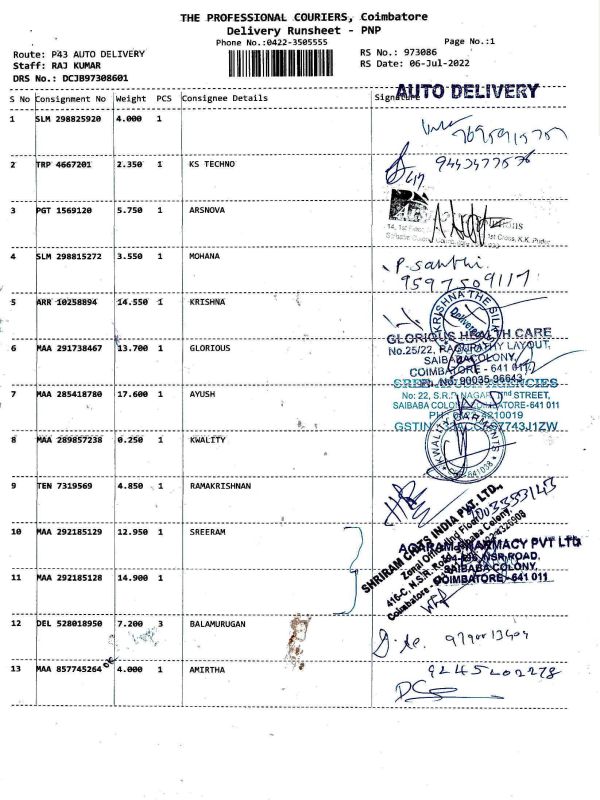 THE PROFESSIONAL COURIERS, Coimbatore
Delivery Runsheet - PNP
Phone No.:0422-3505555 Page No.:1
Route: P43 AUTO DELIVERY RS No.: 973086
Staff: RAJ KUMAR RS Date: 06-Jul-2022
DRS No.: DCJB97308601
AUTO DELIVERY
S No Consignment No Weight PCS Consignee Details Signature
1 SLM 298825920 4.000 1
2 TRP 4667201 2.350 1 KS TECHNO
3 PGT 1569120 5.750 1 ARSNOVA
4 SLM 298815272 3.550 1 MOHANA
P. santhi.
9597509117
5 ARR 10258894 14.550 1 KRISHNA
KRISHNA THE SILK
6 MAA 291738467 13.700 1 GLORIOUS
GLORIOUS HEALTH CARE
No.25/22, LAYOUT,
SAIBABA COLONY,
COIMBATORE - 641 011
Ph. No: 90035 96643
AGENCIES
7 MAA 285418780 17.600 1 AYUSH
No: 22, S.R.P. NAGAR, IInd STREET,
SAIBABA COLONY, COIMBATORE-641 011
8 MAA 289857238 0.250 1 KWALITY
KWALITY GARMENTS
9 TEN 7319569 4.850 1 RAMAKRISHNAN
10 MAA 292185129 12.950 1 SREERAM
SHRIRAM CHITS INDIA PVT. LTD.,
AGARAM PHARMACY PVT LTD
NSR ROAD,
SAIBABA COLONY,
COIMBATORE-641 011
11 MAA 292185128 14.900 1
12 DEL 528018950 7.200 3 BALAMURUGAN
13 MAA 857745264 4.000 1 AMIRTHA